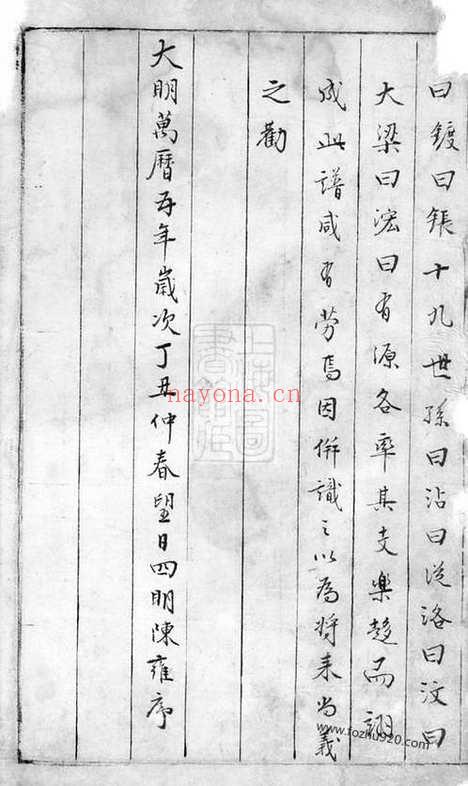 曰鍍曰鋹十九世孫曰沾曰從洛曰汶曰
大梁曰浤曰有源各率其支樂趨而詡
成此譜咸有勞焉因併識之以為將来尚義
之勸
大明萬曆五年歲次丁丑仲春望日四明陳雍序
nayona.cn
www.fozhu920.com